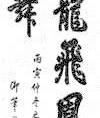 龍飛鳳
舞
丙寅仲冬
御筆